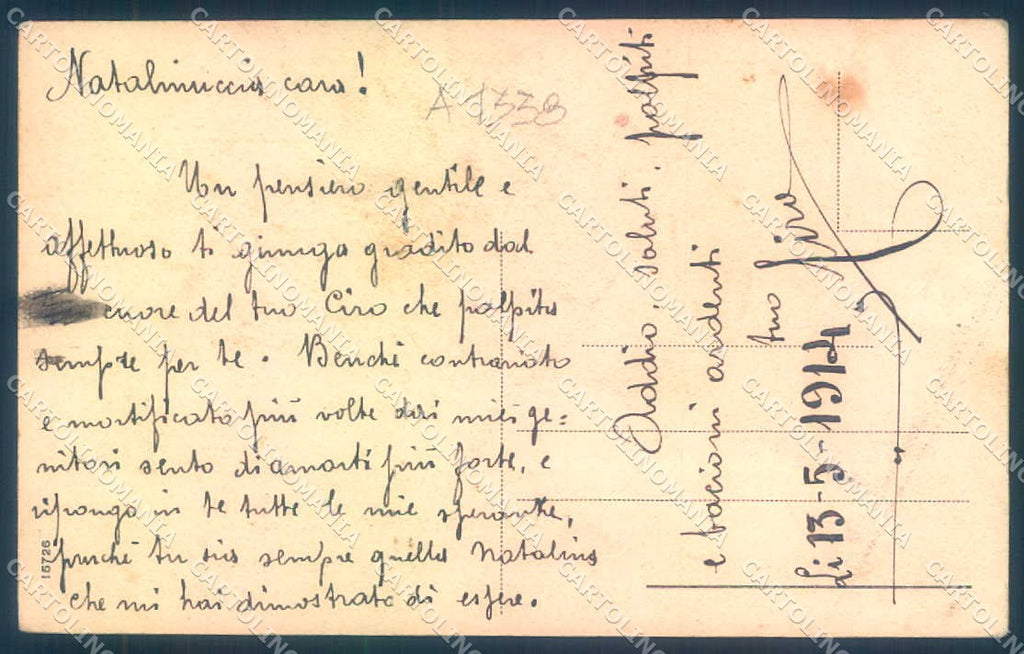 Natalinuccia cara!
A 1338
Un pensiero gentile e
affettuoso ti giunga gradito dal
cuore del tuo Ciro che palpita
sempre per te. Benchè contrariato
e mortificato più volte dai miei ge=
nitori sento di amarti più forte, e
ripongo in te tutte le mie speranze,
purchè tu sia sempre quella Natalina
che mi hai dimostrato di essere.
15726
Addio, saluti, palpiti
e bacioni ardenti
tuo Ciro
Li 13-5-1914.
CARTOLINOMANIA